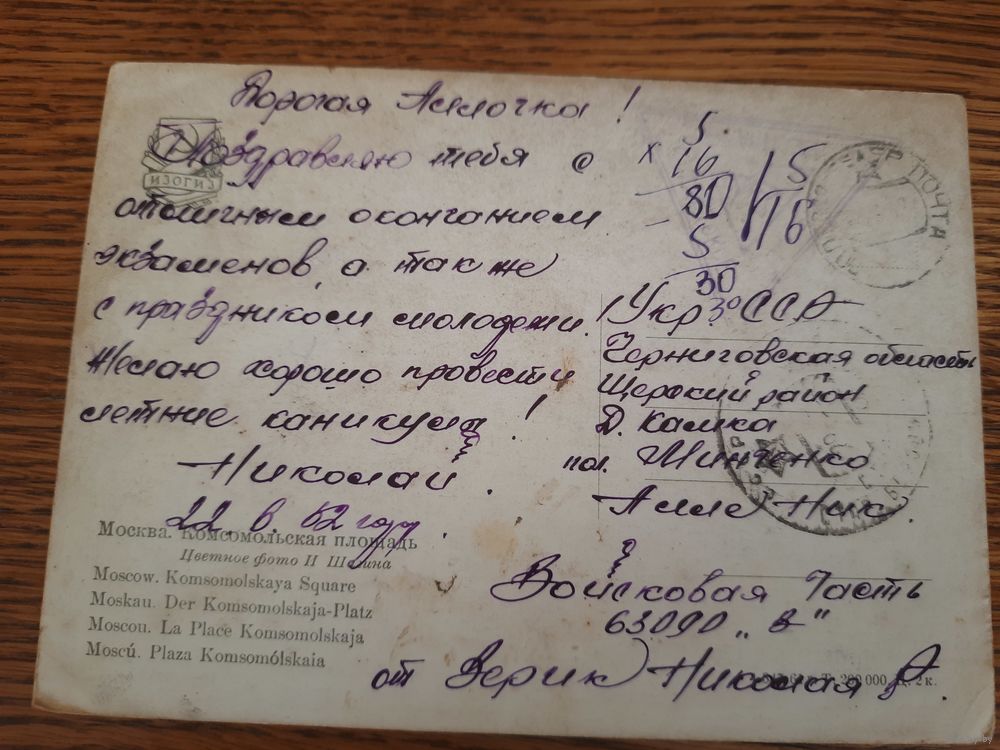 Дорогая Аллочка!
Поздравляю тебя с
отличным окончанием
экзаменов, а так же
с праздником молодежи.
Желаю хорошо провести
летние каникулы!
Николай.
22. 6. 62 году.
ИЗОГИЗ
5
x 16
80
5
30
5
16
ПОЧТА
Укр. ССР
Черниговская область
Щорский район
Д. Камка
пол.
Алле Ник.
Войсковая Часть
63090 „В"
от Верик Николая А.
Москва. Комсомольская площадь
Цветное фото Н Шагина
Moscow. Komsomolskaya Square
Moskau. Der Komsomolskaja-Platz
Moscou. La Place Komsomolskaja
Moscú. Plaza Komsomólskaia
200 000 Ц. 2 к.